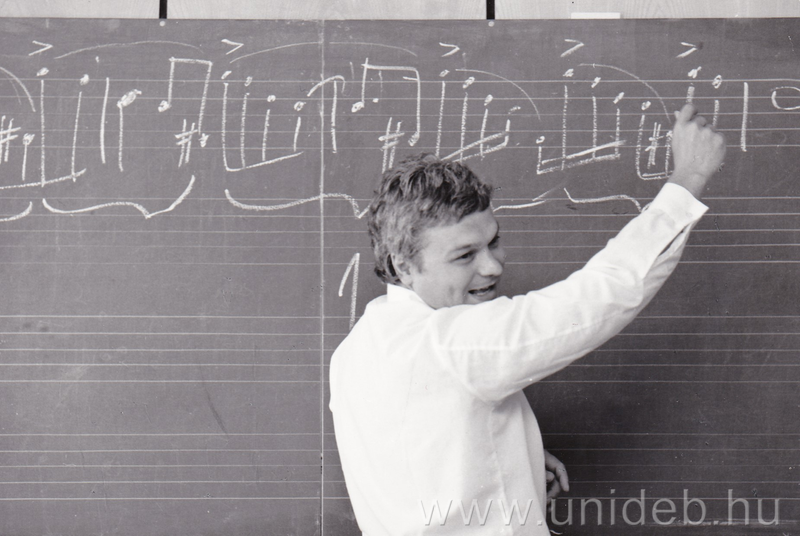 1
www.unideb.hu